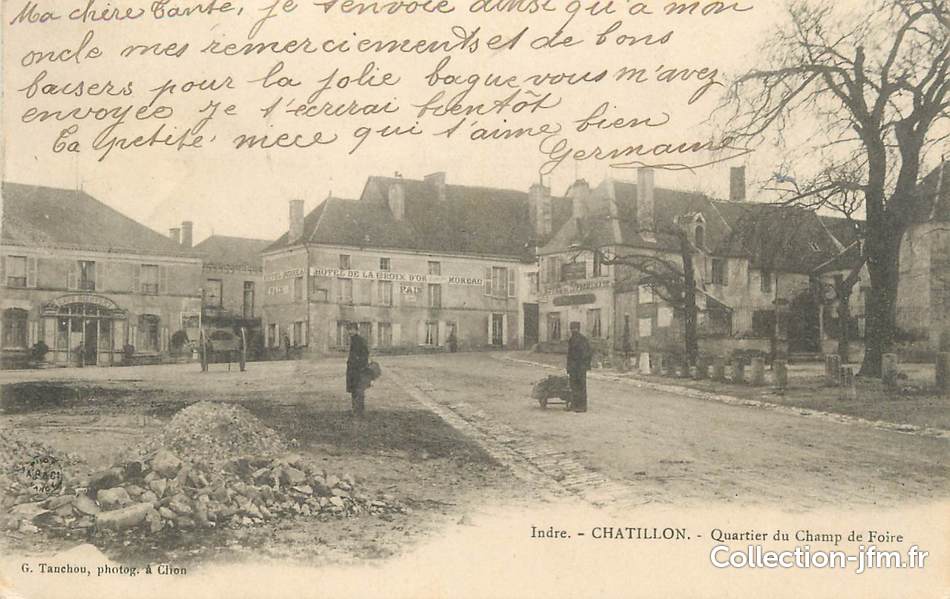 Ma chère Tante, je t'envoie ainsi qu'à mon
oncle mes remerciements et de bons
baisers pour la jolie bague vous m'avez
envoyée je t'écrirai bientôt
Ta petite nièce qui t'aime bien
Germaine
HOTEL DE LA CROIX D'OR MOREAU
PAIX
Indre. - CHATILLON. - Quartier du Champ de Foire
Collection-jfm.fr
G. Tanchou, photog. à Clion